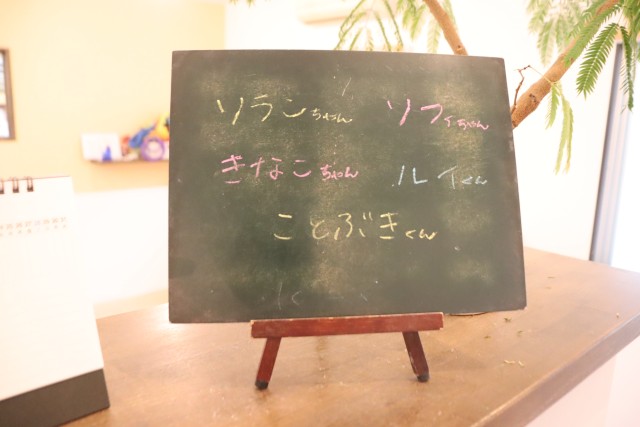 ソランちゃん ソフィちゃん
きなこちゃん ルイくん
ことぶきくん